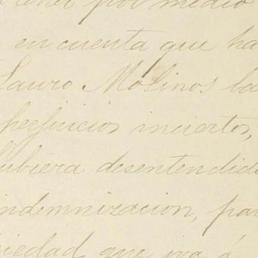 tener por medio
en cuenta que ha
Lauro Molinos ba
perjuicios inciertos,
hubiera desentendid
indemnizacion, par
iedad que iva á